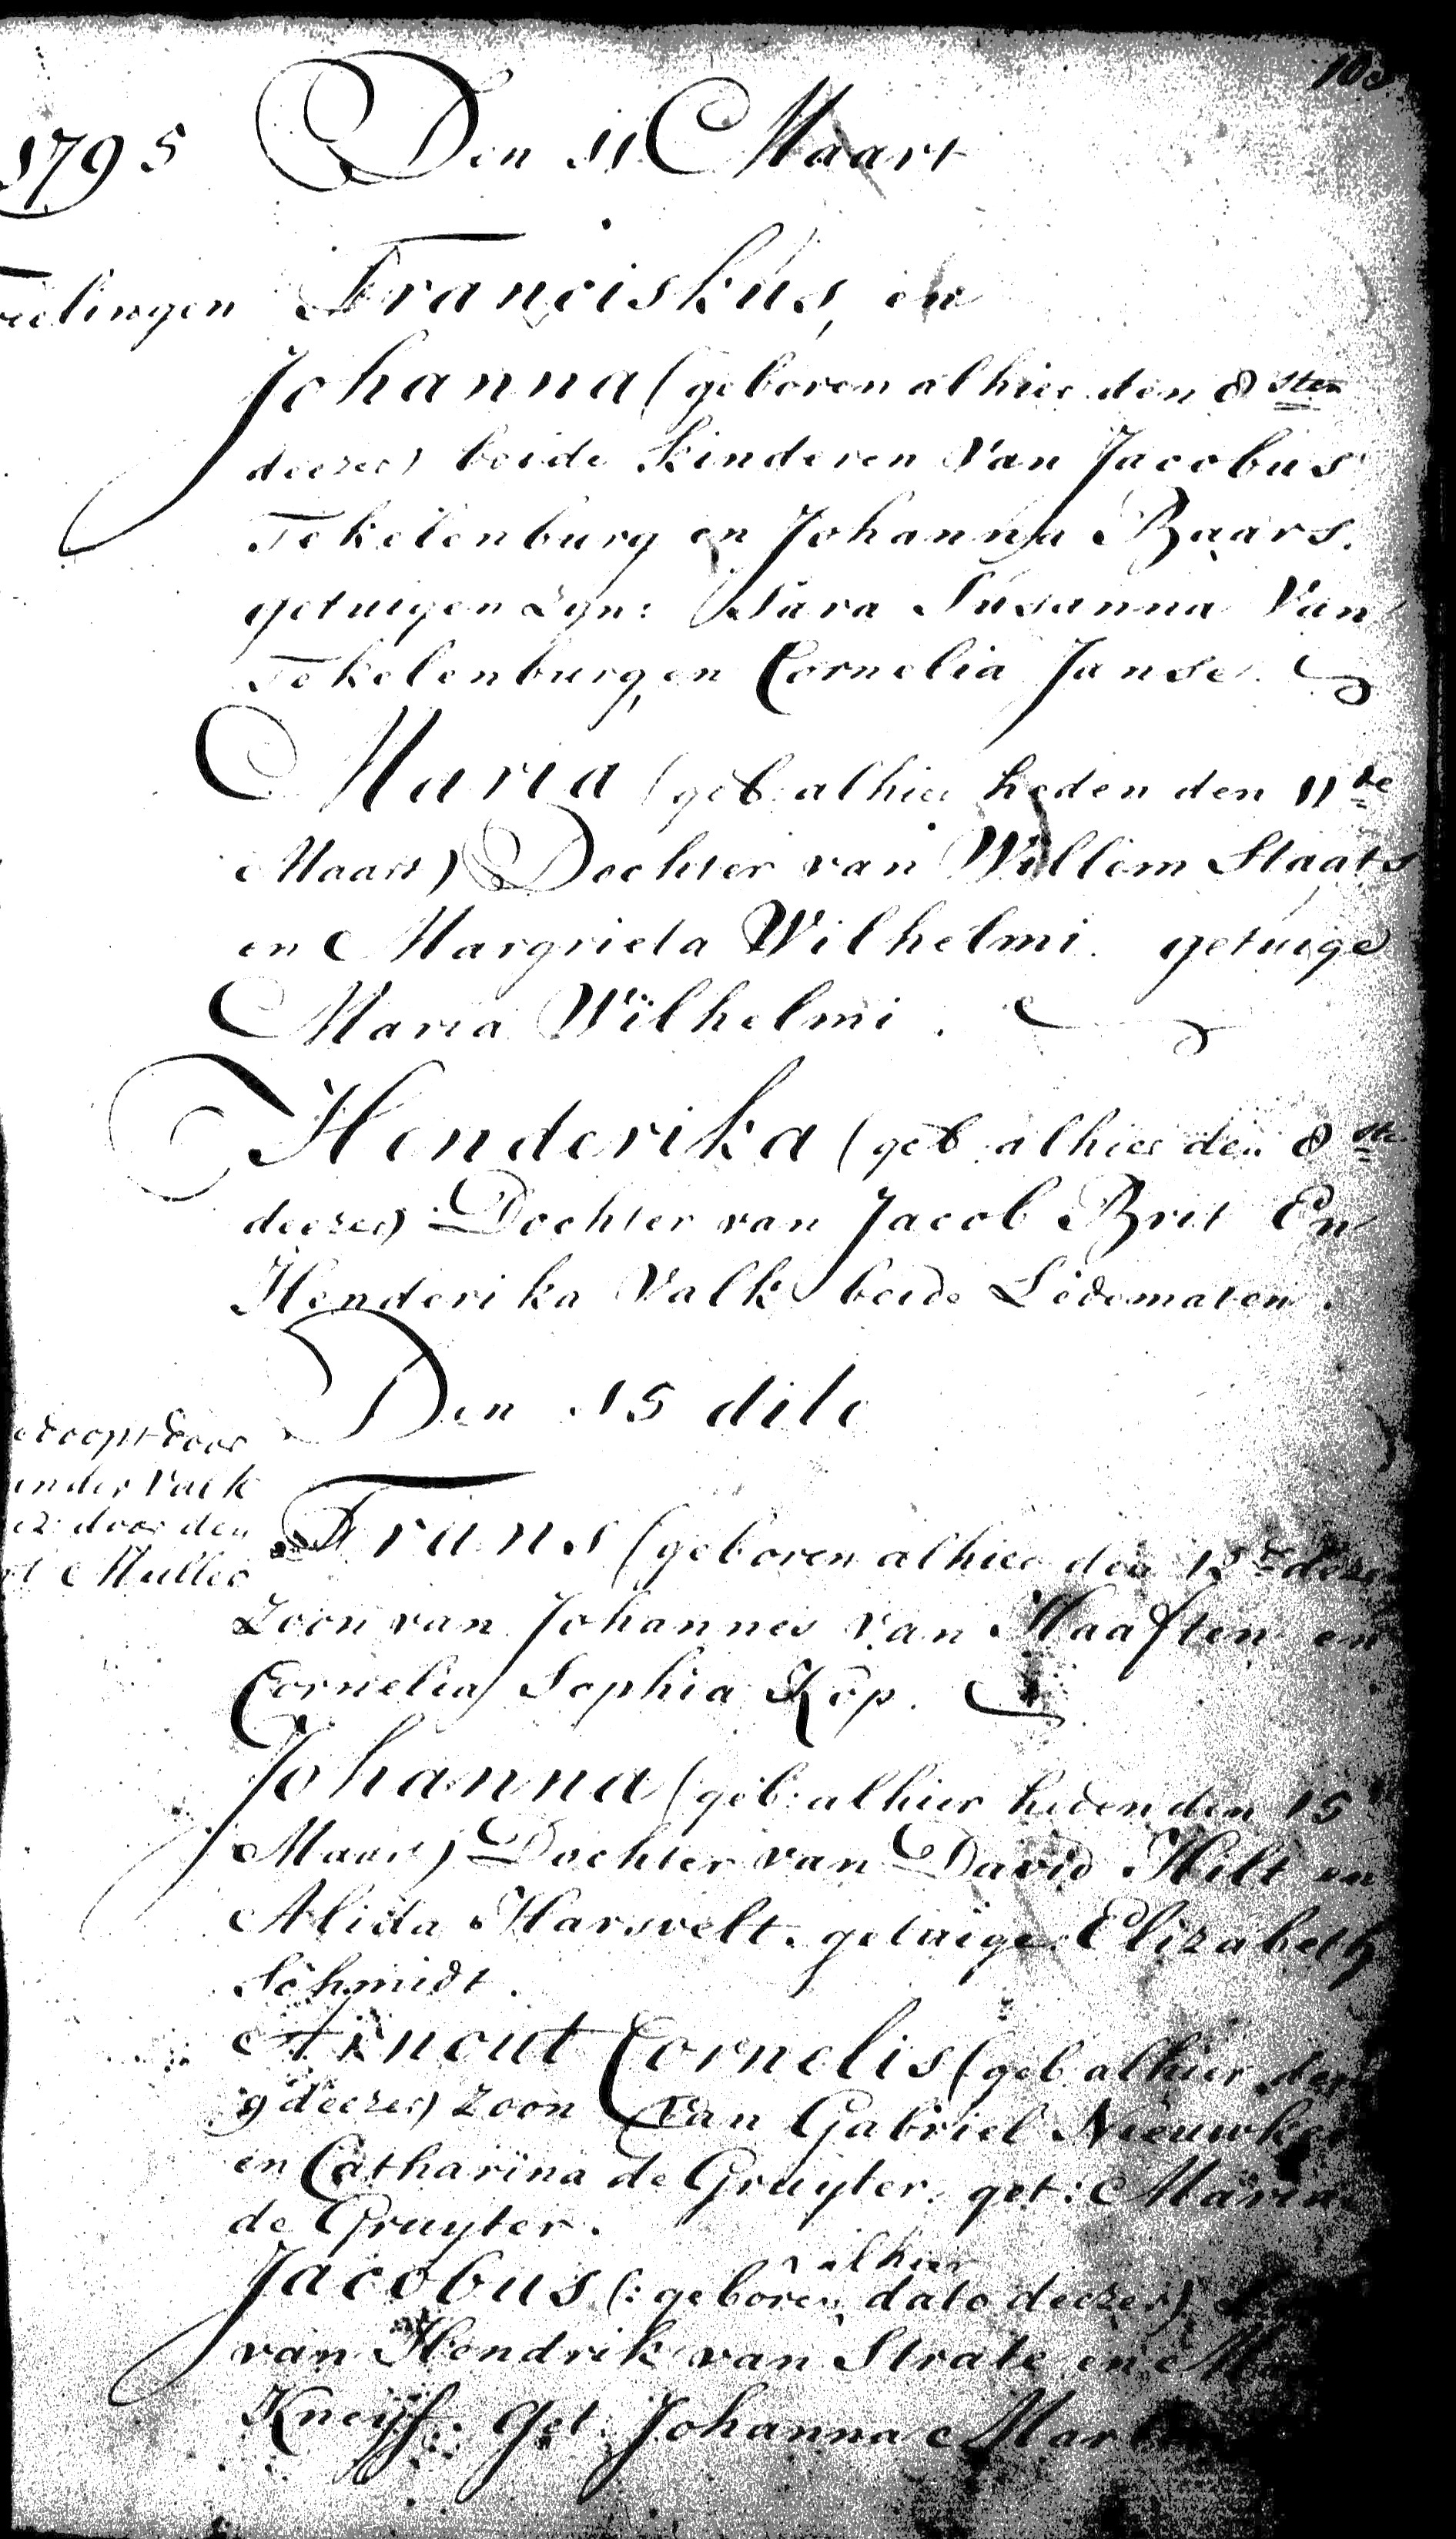 1795 Den 11 Maart
Franciskus, en
Johanna (geboren alhier den 8sten
deezer) beide kinderen van Jacobus
Tekelenburg en Johanna Baars.
getuigen zyn: Sara Susanna Van
Tekelenburg, en Cornelia Janse.
Maria (geb: alhier heden den 11de
Maart) Dochter van Willem Staats
en Margrieta Wilhelmi. getuige
Maria Wilhelmi.
Henderika (geb: alhier den 8ste
deezer) Dochter van Jacob Brit En
Henderika Valk beide Ledematen.
Den 15 dito
door
Valk
door den
Muller
Frans (geboren alhier den 12de
Zoon van Johannes van Haaften en
Cornelia Sophia Kop.
Johanna (geb: alhier heden den 15
Maart) Dochter van David Hilt en
Alida Harsvelt. getuige Elizabeth
Schmidt.
Arnout Cornelis (geb: alhier den
9 deezer) Zoon van Gabriel
en Catharina de Gruyter. get: Maria
de Gruyter.
Jacobus (: geboren alhier dato deezer)
van Hendrik van Strate en
Kneyf. Get: Johanna